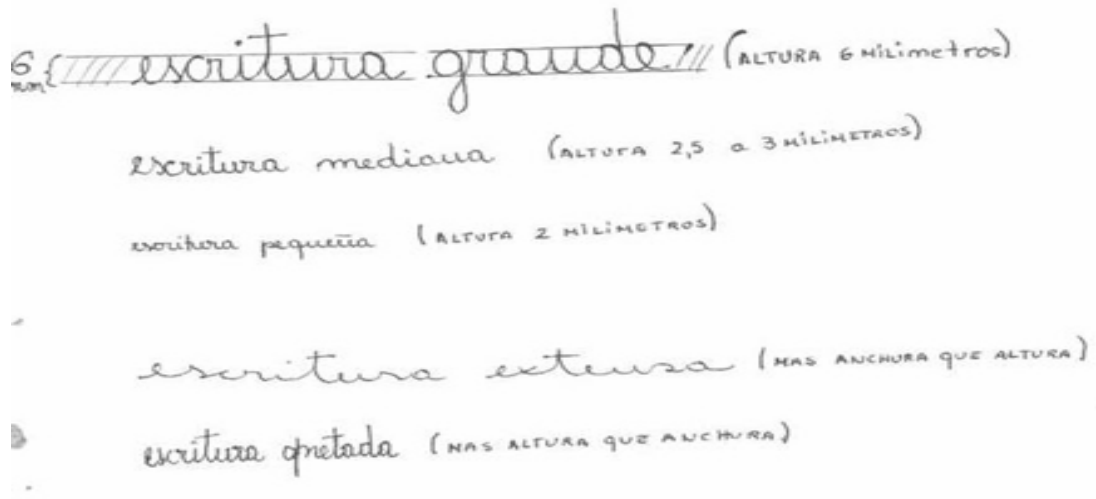 6 mm { escritura grande (ALTURA 6 MILIMETROS)
escritura mediana (ALTURA 2,5 a 3 MILIMETROS)
escritura pequeña (ALTURA 2 MILIMETROS)
escritura extensa (MAS ANCHURA QUE ALTURA)
escritura apretada (MAS ALTURA QUE ANCHURA)